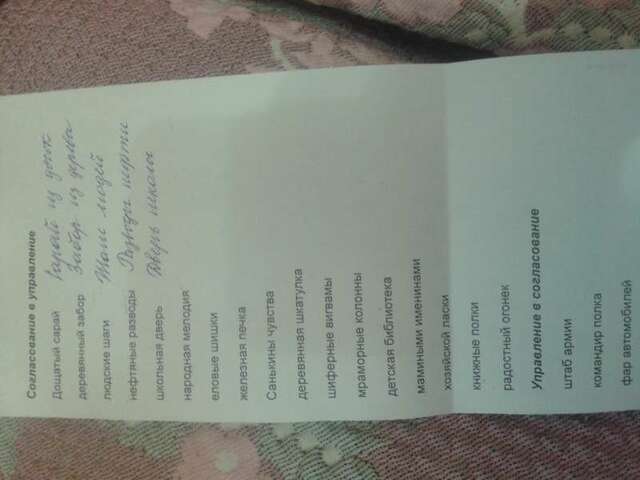 Согласование в управление
Дощатый сарай Сарай из досок
деревянный забор Забор из дерева
людские шаги Шаги людей
нефтяные разводы Разводы нефти
школьная дверь Дверь школы
народная мелодия
еловые шишки
железная печка
Санькины чувства
деревянная шкатулка
шиферные вигвамы
мраморные колонны
детская библиотека
мамиными именинами
хозяйской ласки
книжные полки
радостный огонек
Управление в согласование
штаб армии
командир полка
фар автомобилей